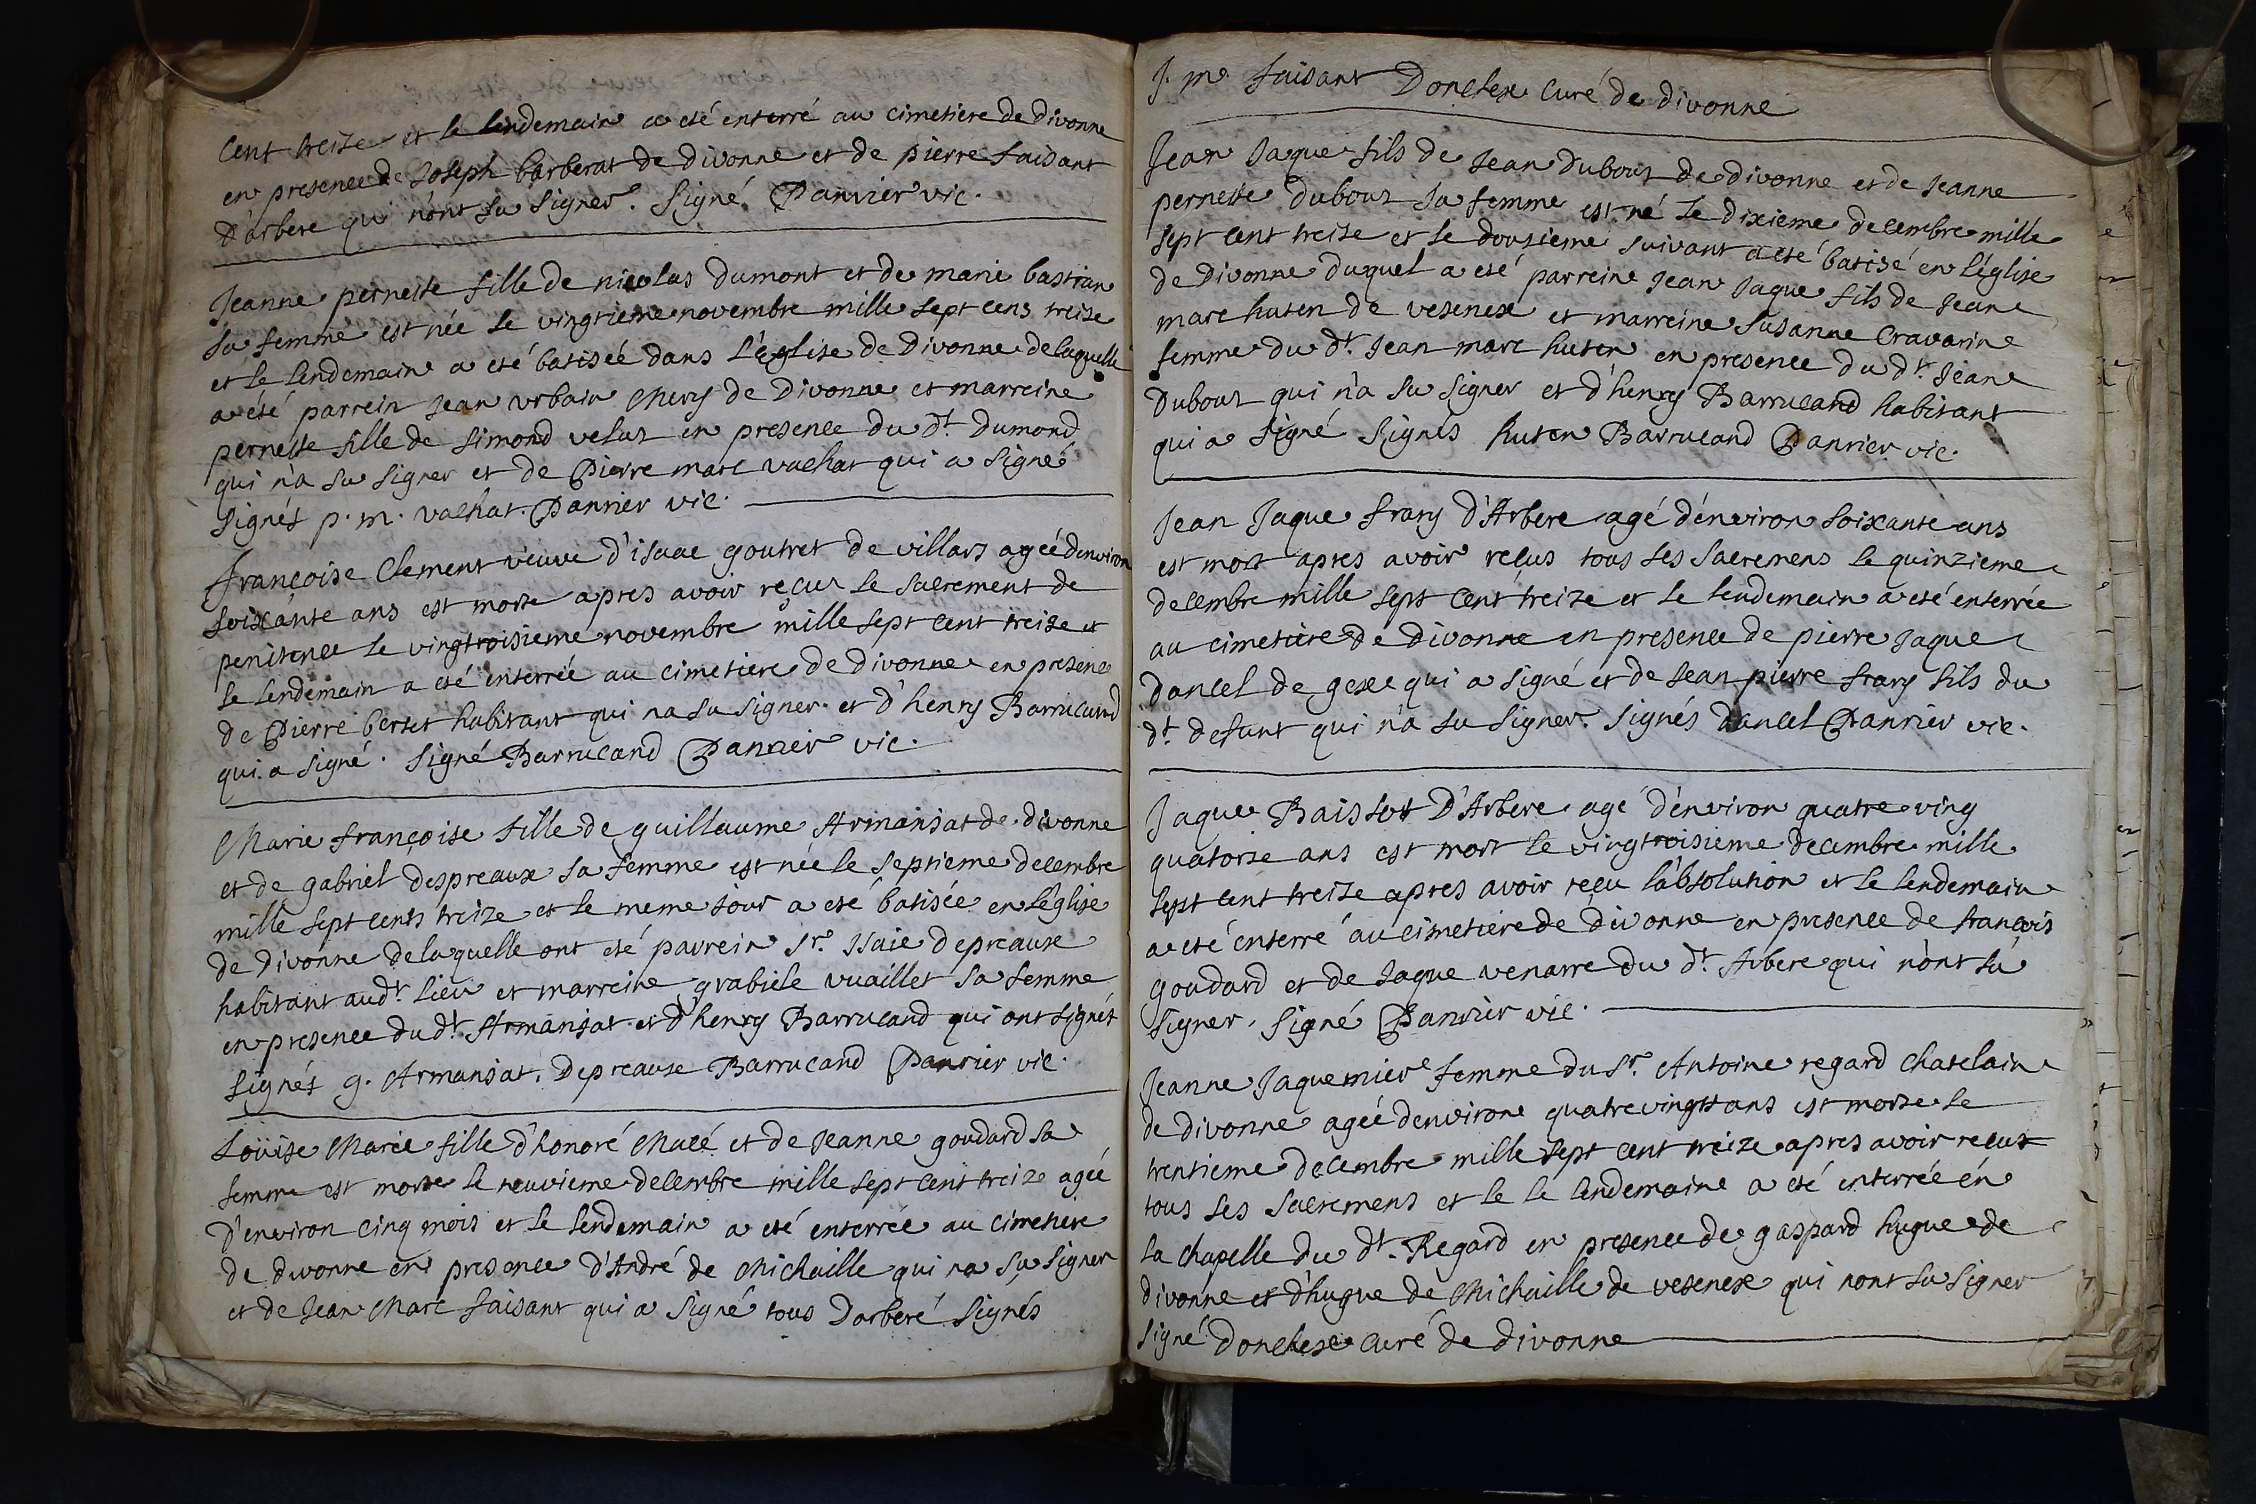 Cent treise et le lendemain a eté enterré au cimetiere de Divonne
en presence de Joseph barberat de divonne et de pierre faisant
D'arbere qui n'ont su signer. Signé. Panrier vic.
Jeanne pernette fille de nicolas Dumont et de marie bastian
sa femme est née le vingtieme novembre mille sept cens treise
et le lendemain a eté batisée dans L'église de Divonne de laquelle
a été parrein jean urbain Mery de Divonne et marreine
pernette fille de simond velut en presence du dt. Dumond
qui n'a su signer et de Pierre marc vachat qui a signé
signés p. m. vachat. Panrier vic.
Françoise Clement veuve d'isaac goutret de villars agée denviron
soixante ans est morte apres avoir reçus le sacrement de
penitence le vingtroisieme novembre mille sept cent treize et
le lendemain a eté enterrée au cimetiere de divonne en presence
de Pierre bertet habitant qui na su signer. et d'henry Barrucand
qui a signé. signé Barrucand Panrier vic.
Marie françoise fille de guillaume Armanjat de divonne
et de gabriel despreaux sa femme est née le septieme decembre
mille sept cents treize et le meme jour a eté batisée en L'église
de Divonne de laquelle ont eté parrein Sr. Isaie Depreause
habitant audt. lieu et marreine grabiele vuaillet sa femme
en presence du dt. Armanjat et d'henry Barrucand qui ont signés
signés g. Armanjat. Depreause Barrucand Panrier vic.
Loüise Marie fille d'honoré Macé et de Jeanne goudard sa
femme est morte le neuvieme decembre mille sept cent treize agée
D'environ cinq mois et le lendemain a eté enterrée au cimetiere
de divonne en presence d'André de Michaille qui na su signer
et de Jean Marc faisant qui a signé tous Darbere signés
J. m. faisant Donchex curé de divonne
Jean Jaque fils de Jean Dubout de divonne et de Jeanne
pernette Dubout sa femme est né le dixieme decembre mille
sept cent treize et le douzieme suivant a eté batisé en L'église
de Divonne duquel a eté parreine Jean Jaque fils de Jean
marc huten de vesenex et marreine Susanne Cravarine
femme du dt. Jean marc huten en presence du dt. Jean
Dubout qui n'a su signer et d'henry Barrucand habitant
qui a signé signés huten Barrucand Panrier vic.
Jean Jaque frary d'Arbere agé d'environ soixante ans
est mort apres avoir reçus tous ses sacremens le quinzieme
decembre mille sept cent treize et le lendemain a eté enterrée
au cimetiere de divonne en presence de pierre Jaque
Dancel de gexe qui a signé et de Jean pierre frary fils du
dt. defunt qui n'a su signer. signés Dancel Panrier vic.
Jaque D'Arbere agé d'environ quatre ving
quatorze ans est mort le vingtroisieme decembre mille
sept cent treize apres avoir reçu l'absolution et le lendemain
a eté enterré au cimetiere de divonne en presence de françois
goudard et de Jaque venarre du dt. Arbere qui n'ont su
signer. signé Panrier vic.
Jeanne Jaquemiere femme du Sr. Antoine regard Chatelain
de divonne agée denvirone quatrevingts ans est morte le
trentieme decembre mille sept cent treize apres avoir recus
tous ses sacremens et le le lendemaine a eté enterrée én
la chapelle du dt. Regard en presence de gaspard hugue de
divonne et d'hugue de Michaille de vesenex qui nont su signer
signé Donchexe curé de divonne